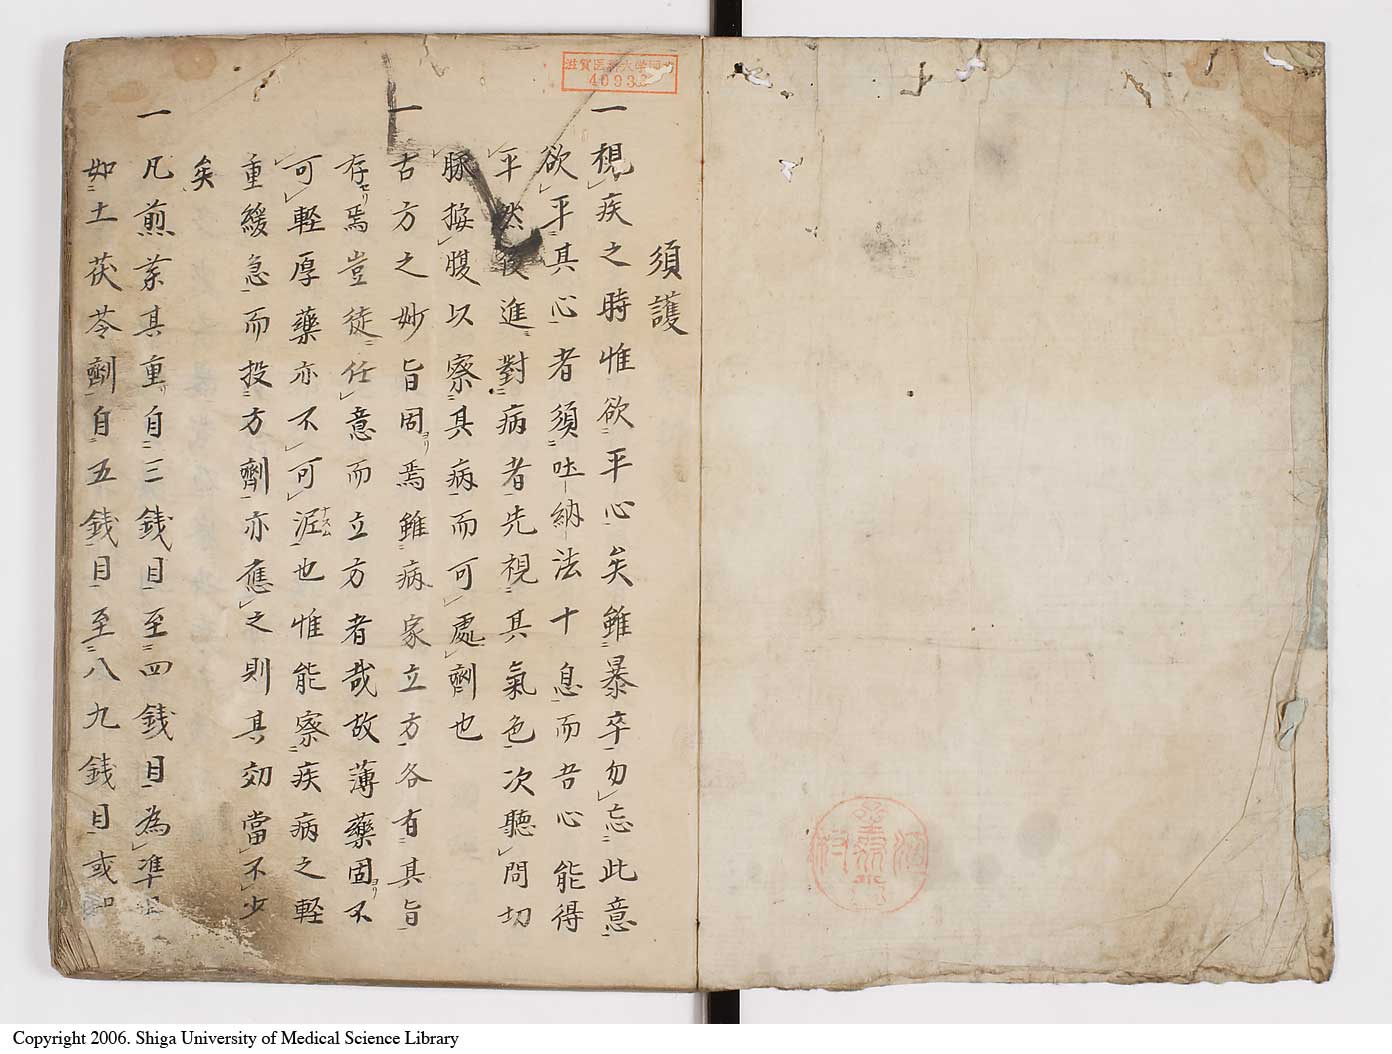 須護
一 視疾之時惟欲平心矣雖暴卒勿忘此意
欲平其心者須吐納法十息而吾心能得
平然後進對病者先視其氣色次聽問切
脈按腹以察其病而可處劑也
一 古方之妙旨固ヨリ焉雖病家立方各有其旨
存セリ焉豈徒任意而立方者哉故薄藥固ヨリ不
可輕厚藥亦不可泥ナズム也惟能察疾病之輕
重緩急而投方劑亦應之則其効當不少
矣
一 凡煎藥其重リ自三錢目至四錢目為準
如土茯苓劑自五錢目至八九錢目或
滋賀医科大学図
40933
Copyright 2006. Shiga University of Medical Science Library